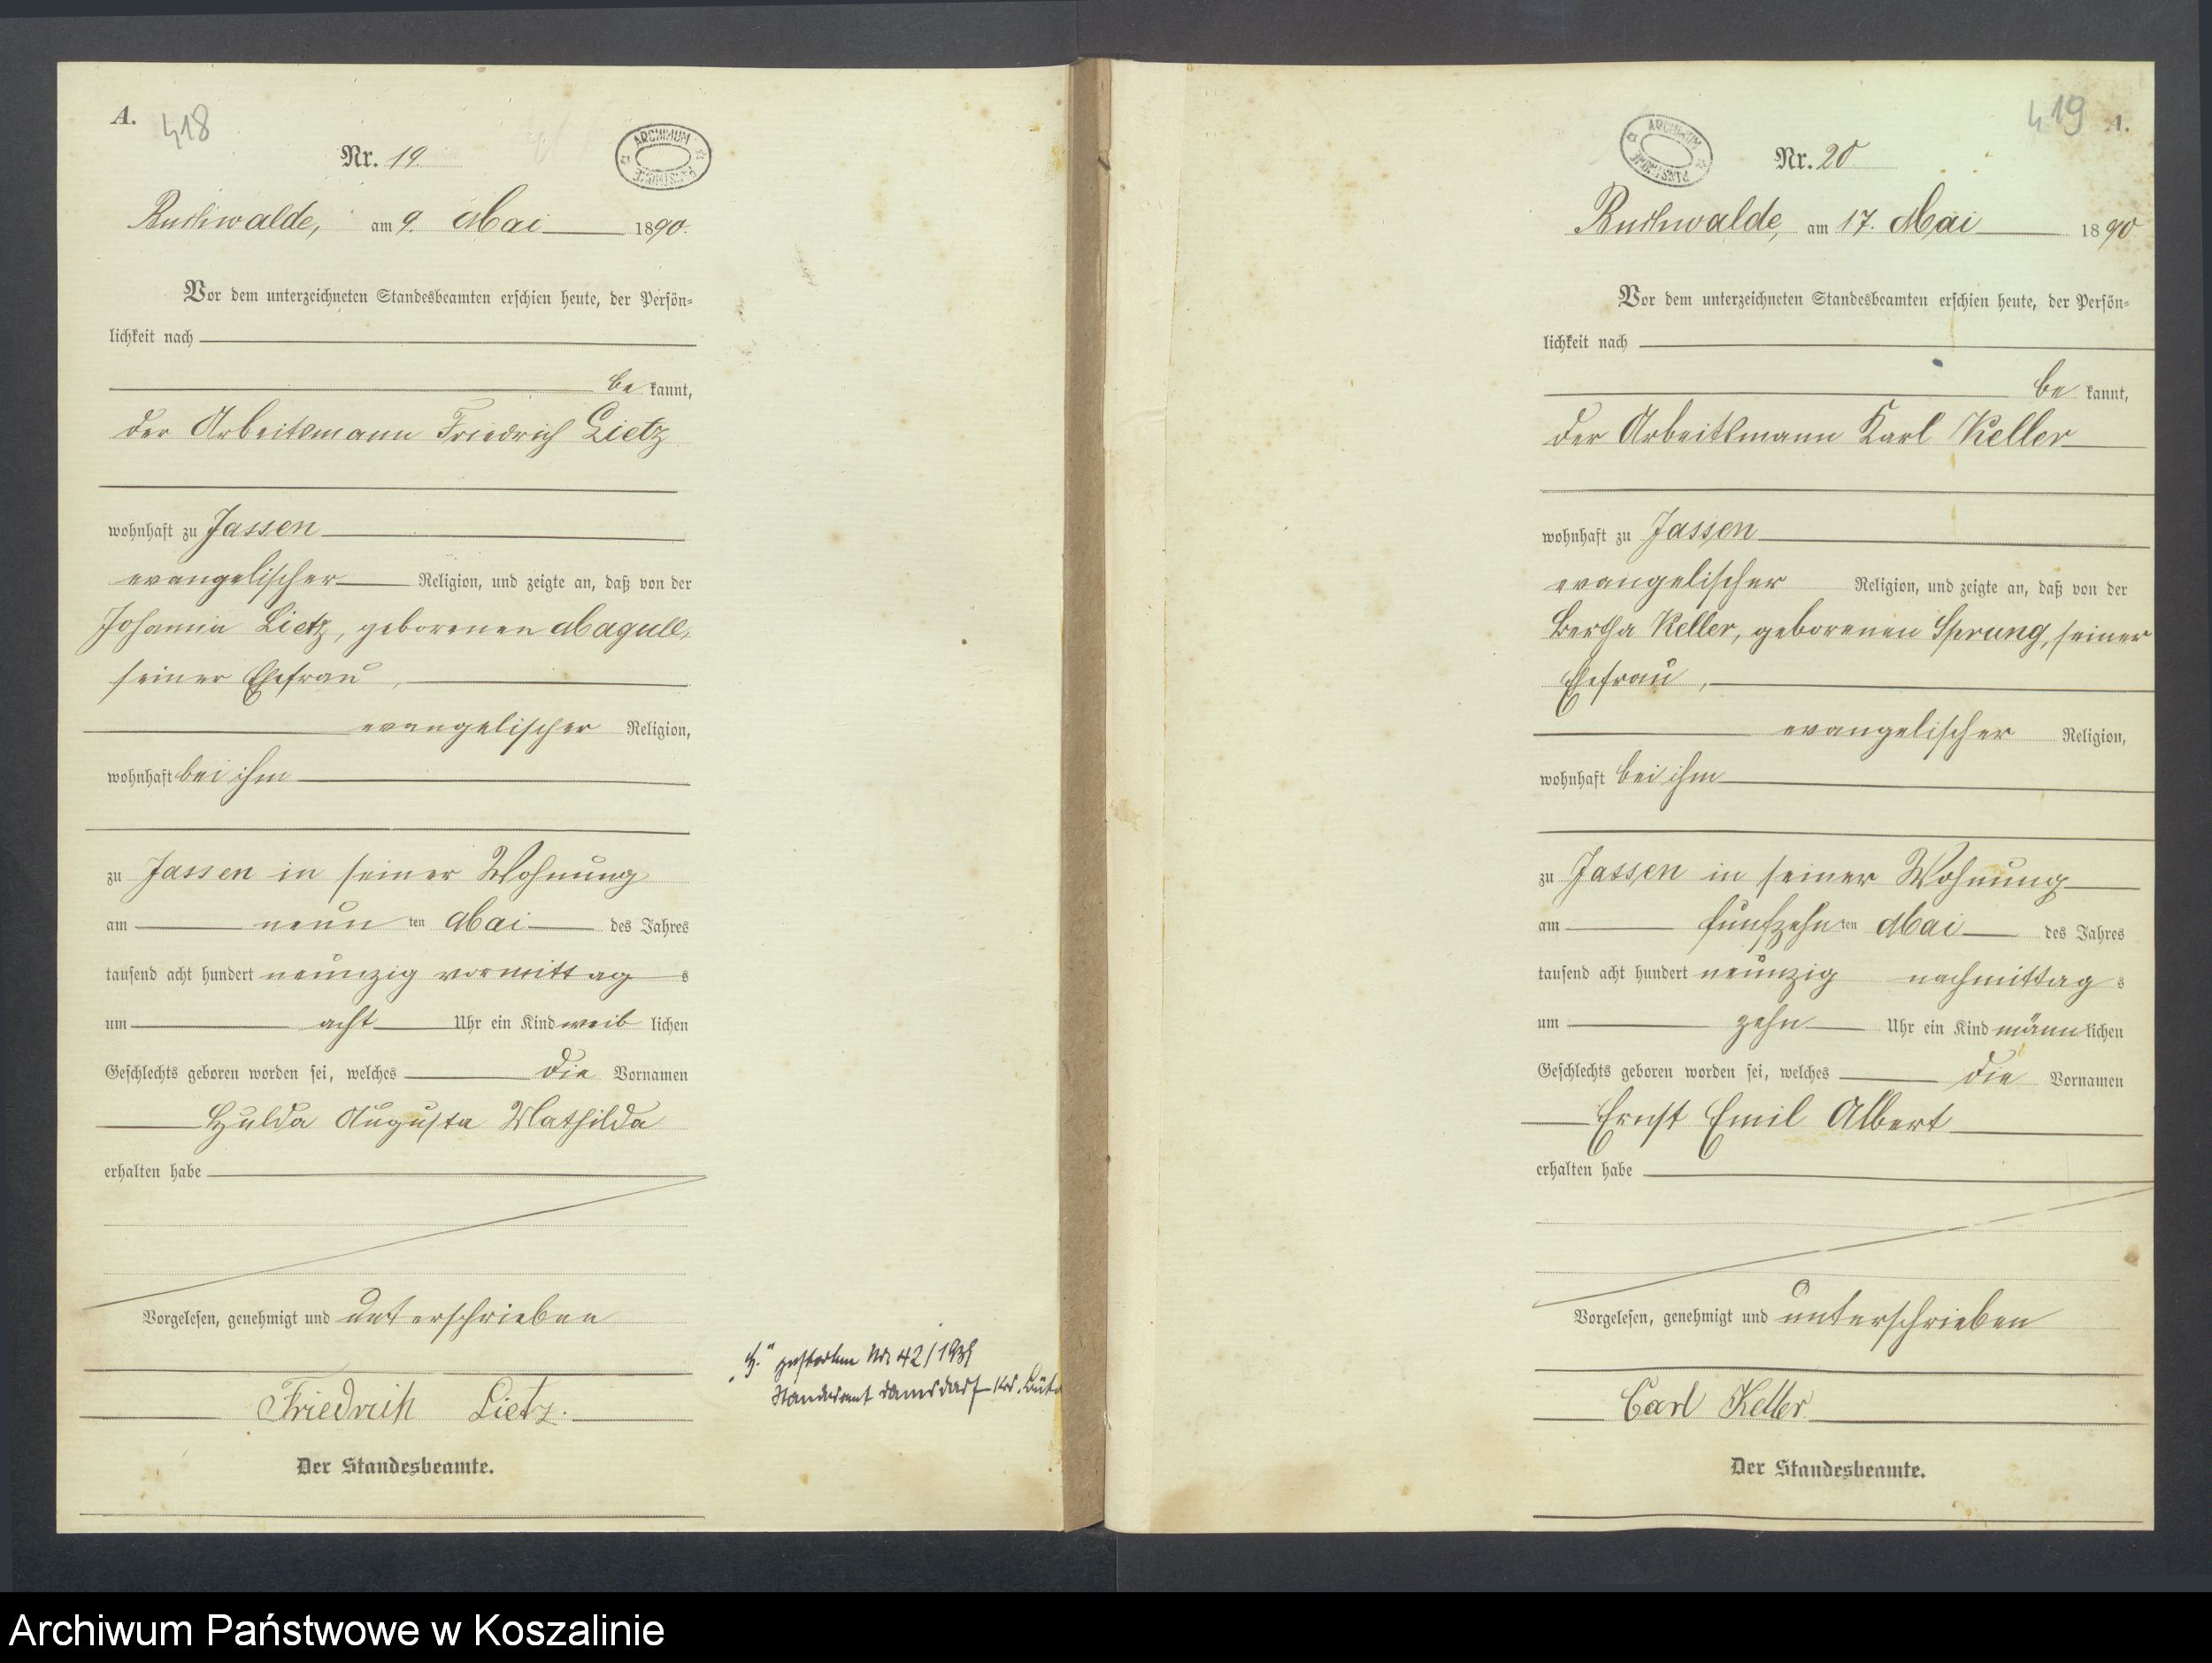 A.
418
Nr. 19.
ARCHIWUM PAŃSTWOWE
am 9. Mai 1890.
Vor dem unterzeichneten Standesbeamten erschien heute, der Persön-
lichkeit nach
be kannt,
der Arbeitsmann Friedrich Lietz
wohnhaft zu Jassen
evangelischer Religion, und zeigte an, daß von der
Lietz, geborenen
seiner Ehefrau,
evangelischer Religion,
wohnhaft bei ihm
zu Jassen in seiner Wohnung
am neun ten Mai des Jahres
tausend acht hundert neunzig vormittag s
um acht Uhr ein Kind weib lichen
Geschlechts geboren worden sei, welches die Vornamen
Hulda Auguste Mathilda
erhalten habe
Vorgelesen, genehmigt und unterschrieben
Friedrich Lietz.
Der Standesbeamte.
gestorben Nr. 42/
Standesamt
419
A.
ARCHIWUM PAŃSTWOWE
Nr. 20
am 17. Mai 1890
Vor dem unterzeichneten Standesbeamten erschien heute, der Persön-
lichkeit nach
be kannt,
der Arbeitsmann Karl Keller
wohnhaft zu Jassen
evangelischer Religion, und zeigte an, daß von der
Bertha Keller, geborenen Sprung, seiner
Ehefrau,
evangelischer Religion,
wohnhaft bei ihm
zu Jassen in seiner Wohnung
am fünfzehn ten Mai des Jahres
tausend acht hundert neunzig nachmittag s
um zehn Uhr ein Kind männ lichen
Geschlechts geboren worden sei, welches die Vornamen
Ernst Emil Albert
erhalten habe
Vorgelesen, genehmigt und unterschrieben
Carl Keller
Der Standesbeamte.
Archiwum Państwowe w Koszalinie